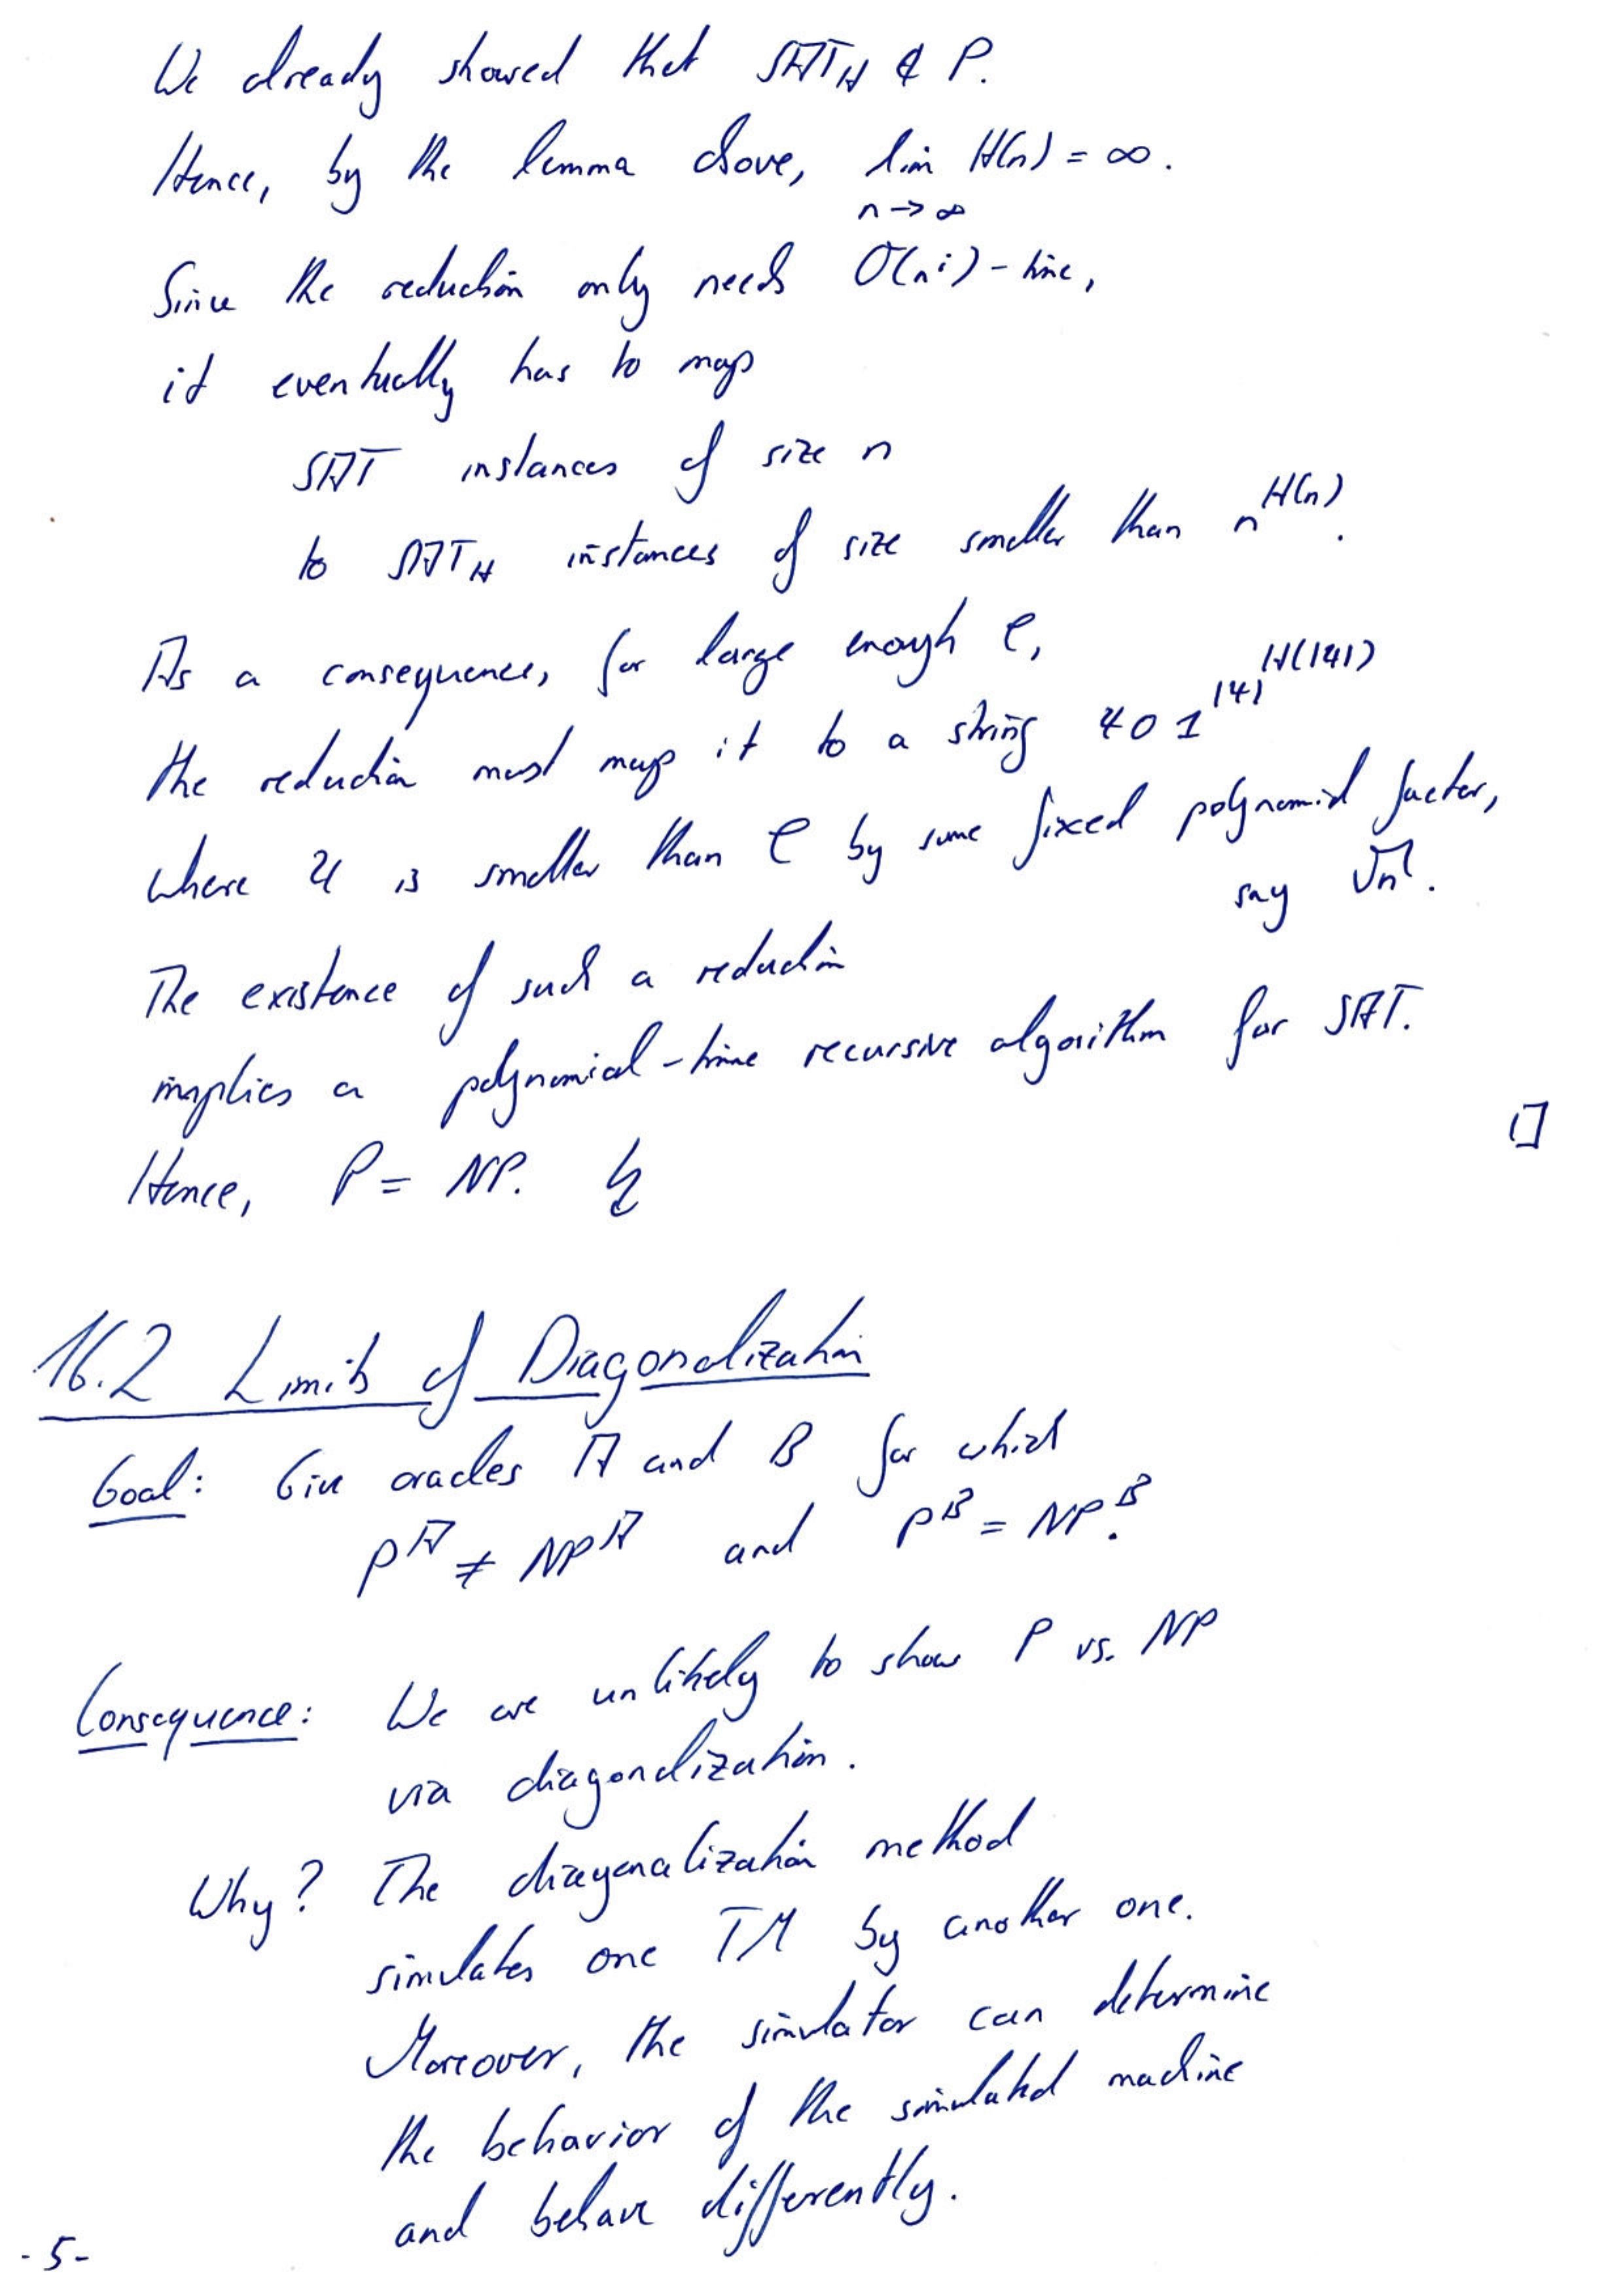 We already showed that SAT_H ∉ P.
Hence, by the lemma above, lim_{n→∞} H(n) = ∞.
Since the reduction only needs O(n^i)-time,
it eventually has to map
SAT instances of size n
to SAT_H instances of size smaller than n^{H(n)}.
As a consequence, for large enough φ,
the reduction must map it to a string ψ 0 1^{|ψ|^{H(|ψ|)}}
where ψ is smaller than φ by some fixed polynomial factor,
say √n.
The existence of such a reduction
implies a polynomial-time recursive algorithm for SAT.
Hence, P = NP. ↯ □
16.2 Limits of Diagonalization
Goal: Give oracles A and B for which
P^A ≠ NP^A and P^B = NP^B.
Consequence: We are unlikely to show P vs. NP
via diagonalization.
Why? The diagonalization method
simulates one TM by another one.
Moreover, the simulator can determine
the behavior of the simulated machine
and behave differently.
- 5 -